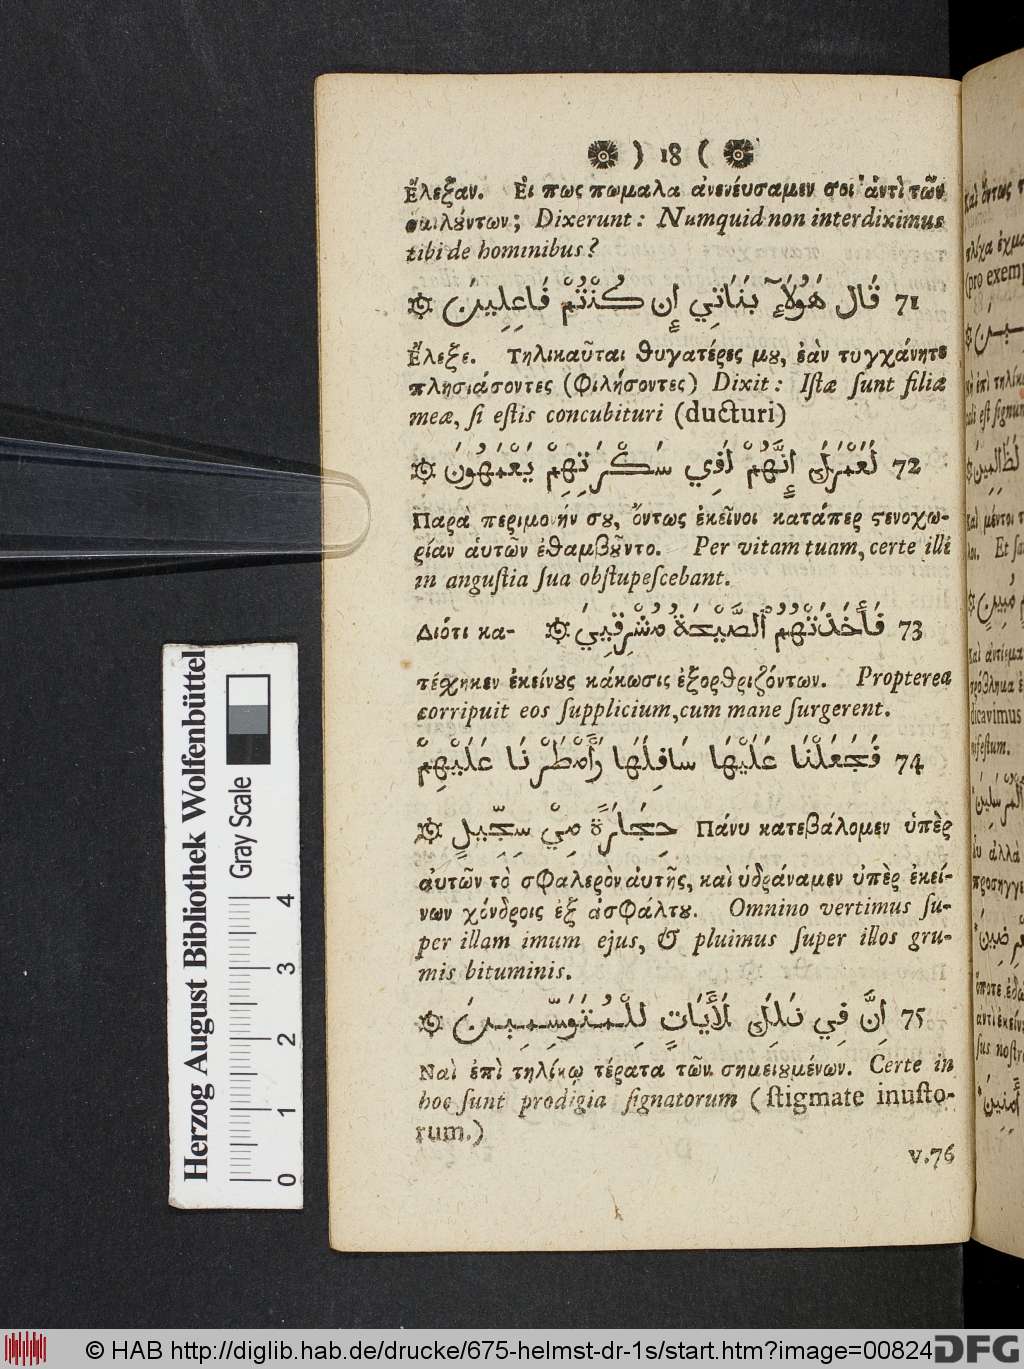 ) 18 (
Ἔλεξαν. Ἐι πως πωμαλα ἀνενέυσαμεν σοι ἀντὶ τῶν
λȣ́ντων; Dixerunt: Numquid non interdiximus
tibi de hominibus?
قَالَ هَٰؤُلَآءِ بَنَاتِي إِن كُنْتُمْ فَاعِلِينَ 71
Ἔλεξε. Τηλικαῦται θυγατέρες μȣ, ἐὰν τυγχάνητε
πλησιάσοντες (Φιλήσοντες) Dixit: Istæ sunt filiæ
meæ, si estis concubituri (ducturi)
لَعَمْرُكَ إِنَّهُمْ لَفِي سَكْرَتِهِمْ يَعْمَهُونَ 72
Παρὰ περιμονήν σȣ, ὄντως ἐκεῖνοι κατάπερ ϛενοχω-
ρίαν ἀυτῶν ἐθαμβȣ͂ντο. Per vitam tuam, certe illi
in angustia sua obstupescebant.
Διότι κα- فَأَخَذَتْهُمُ ٱلصَّيْحَةُ مُشْرِقِينَ 73
τέχηκεν ἐκείνȣς κάκωσις ἐξορθριζόντων. Propterea
corripuit eos supplicium, cum mane surgerent.
فَجَعَلْنَا عَلَيْهَا سَافِلَهَا وَأَمْطَرْنَا عَلَيْهِمْ 74
حِجَارَةً مِنْ سِجِّيلٍ Πάνυ κατεβάλομεν ὑπὲρ
ἀυτῶν τὸ σΦαλερὸν ἀυτῆς, καὶ ὑδράναμεν ὑπὲρ ἐκεί-
νων χόνδροις ἐξ ἀσΦάλτȣ. Omnino vertimus su-
per illam imum ejus, & pluimus super illos gru-
mis bituminis.
إِنَّ فِي ذَلِكَ لَأَيَاتٍ لِلْمُتَوَسِّمِينَ 75
Ναὶ ἐπὶ τηλίκῳ τέρατα τῶν σημειȣμένων. Certe in
hoc sunt prodigia signatorum (stigmate inusto-
rum.)
v. 76
Herzog August Bibliothek Wolfenbüttel
Gray Scale
0 1 2 3 4
© HAB http://diglib.hab.de/drucke/675-helmst-dr-1s/start.htm?image=00824
DFG